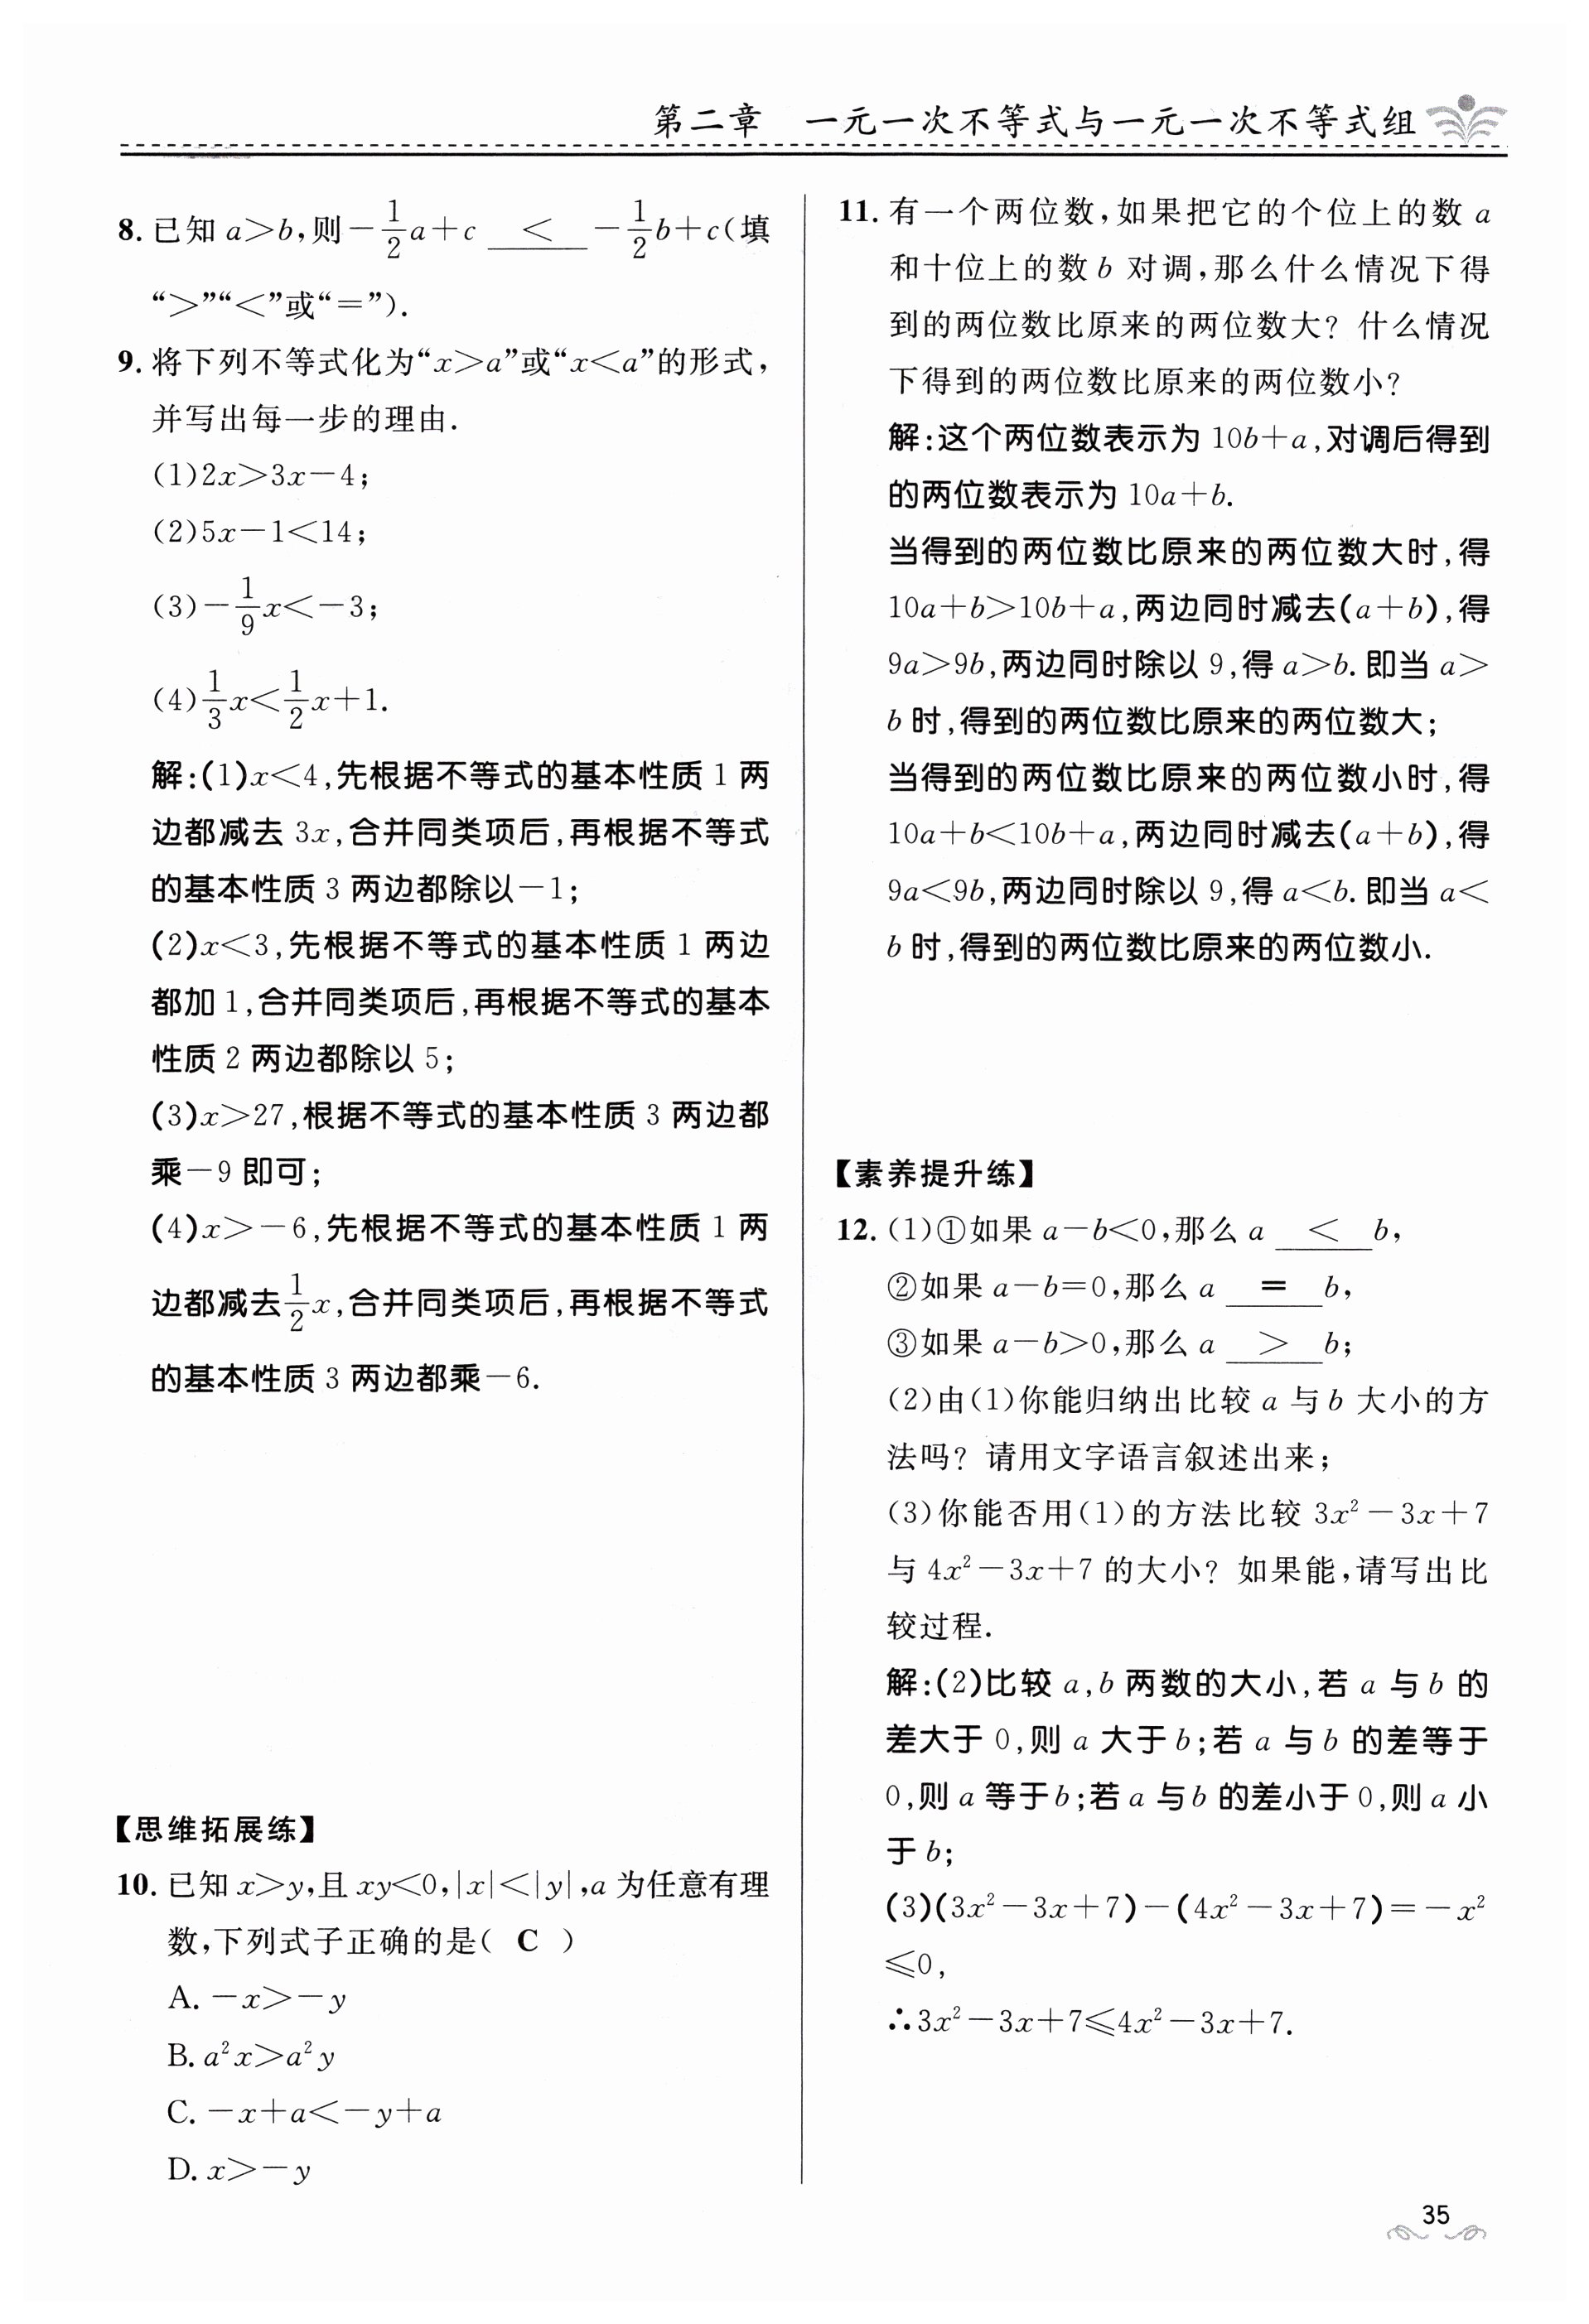 第二章　一元一次不等式与一元一次不等式组
8. 已知 a>b,则 -\frac{1}{2}a+c __<__ -\frac{1}{2}b+c(填
“>”“<”或“=”).
9. 将下列不等式化为“x>a”或“x<a”的形式,
并写出每一步的理由.
(1)2x>3x-4;
(2)5x-1<14;
(3)-\frac{1}{9}x<-3;
(4)\frac{1}{3}x<\frac{1}{2}x+1.
解:(1)x<4,先根据不等式的基本性质 1 两
边都减去 3x,合并同类项后,再根据不等式
的基本性质 3 两边都除以-1;
(2)x<3,先根据不等式的基本性质 1 两边
都加 1,合并同类项后,再根据不等式的基本
性质 2 两边都除以 5;
(3)x>27,根据不等式的基本性质 3 两边都
乘-9 即可;
(4)x>-6,先根据不等式的基本性质 1 两
边都减去\frac{1}{2}x,合并同类项后,再根据不等式
的基本性质 3 两边都乘-6.
【思维拓展练】
10. 已知 x>y,且 xy<0,|x|<|y|,a 为任意有理
数,下列式子正确的是( C )
A. -x>-y
B. a²x>a²y
C. -x+a<-y+a
D. x>-y
11. 有一个两位数,如果把它的个位上的数 a
和十位上的数 b 对调,那么什么情况下得
到的两位数比原来的两位数大? 什么情况
下得到的两位数比原来的两位数小?
解:这个两位数表示为 10b+a,对调后得到
的两位数表示为 10a+b.
当得到的两位数比原来的两位数大时,得
10a+b>10b+a,两边同时减去(a+b),得
9a>9b,两边同时除以 9,得 a>b. 即当 a>
b 时,得到的两位数比原来的两位数大;
当得到的两位数比原来的两位数小时,得
10a+b<10b+a,两边同时减去(a+b),得
9a<9b,两边同时除以 9,得 a<b. 即当 a<
b 时,得到的两位数比原来的两位数小.
【素养提升练】
12. (1)①如果 a-b<0,那么 a __<__ b,
②如果 a-b=0,那么 a __=__ b,
③如果 a-b>0,那么 a __>__ b;
(2)由(1)你能归纳出比较 a 与 b 大小的方
法吗? 请用文字语言叙述出来;
(3)你能否用(1)的方法比较 3x²-3x+7
与 4x²-3x+7 的大小? 如果能,请写出比
较过程.
解:(2)比较 a,b 两数的大小,若 a 与 b 的
差大于 0,则 a 大于 b;若 a 与 b 的差等于
0,则 a 等于 b;若 a 与 b 的差小于 0,则 a 小
于 b;
(3)(3x²-3x+7)-(4x²-3x+7)=-x²
≤0,
∴3x²-3x+7≤4x²-3x+7.
35